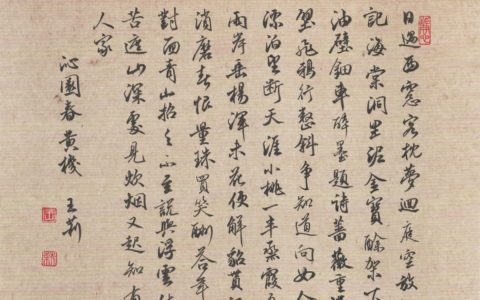 日過西窓客枕夢迴庭空放
記海棠洞里泥金寶酴架下
油壁鈿車醉墨題詩薔薇重
壁飛鴉行整斜爭知道向如今
漂泊望斷天涯小桃一半蒸霞
兩岸垂楊渾未花便解貂貰
消磨春恨量珠買笑酬答年
對面青山招之不至說與浮雲休
苦遮山深處見炊烟又起知有
人家
沁園春黄機 王莉